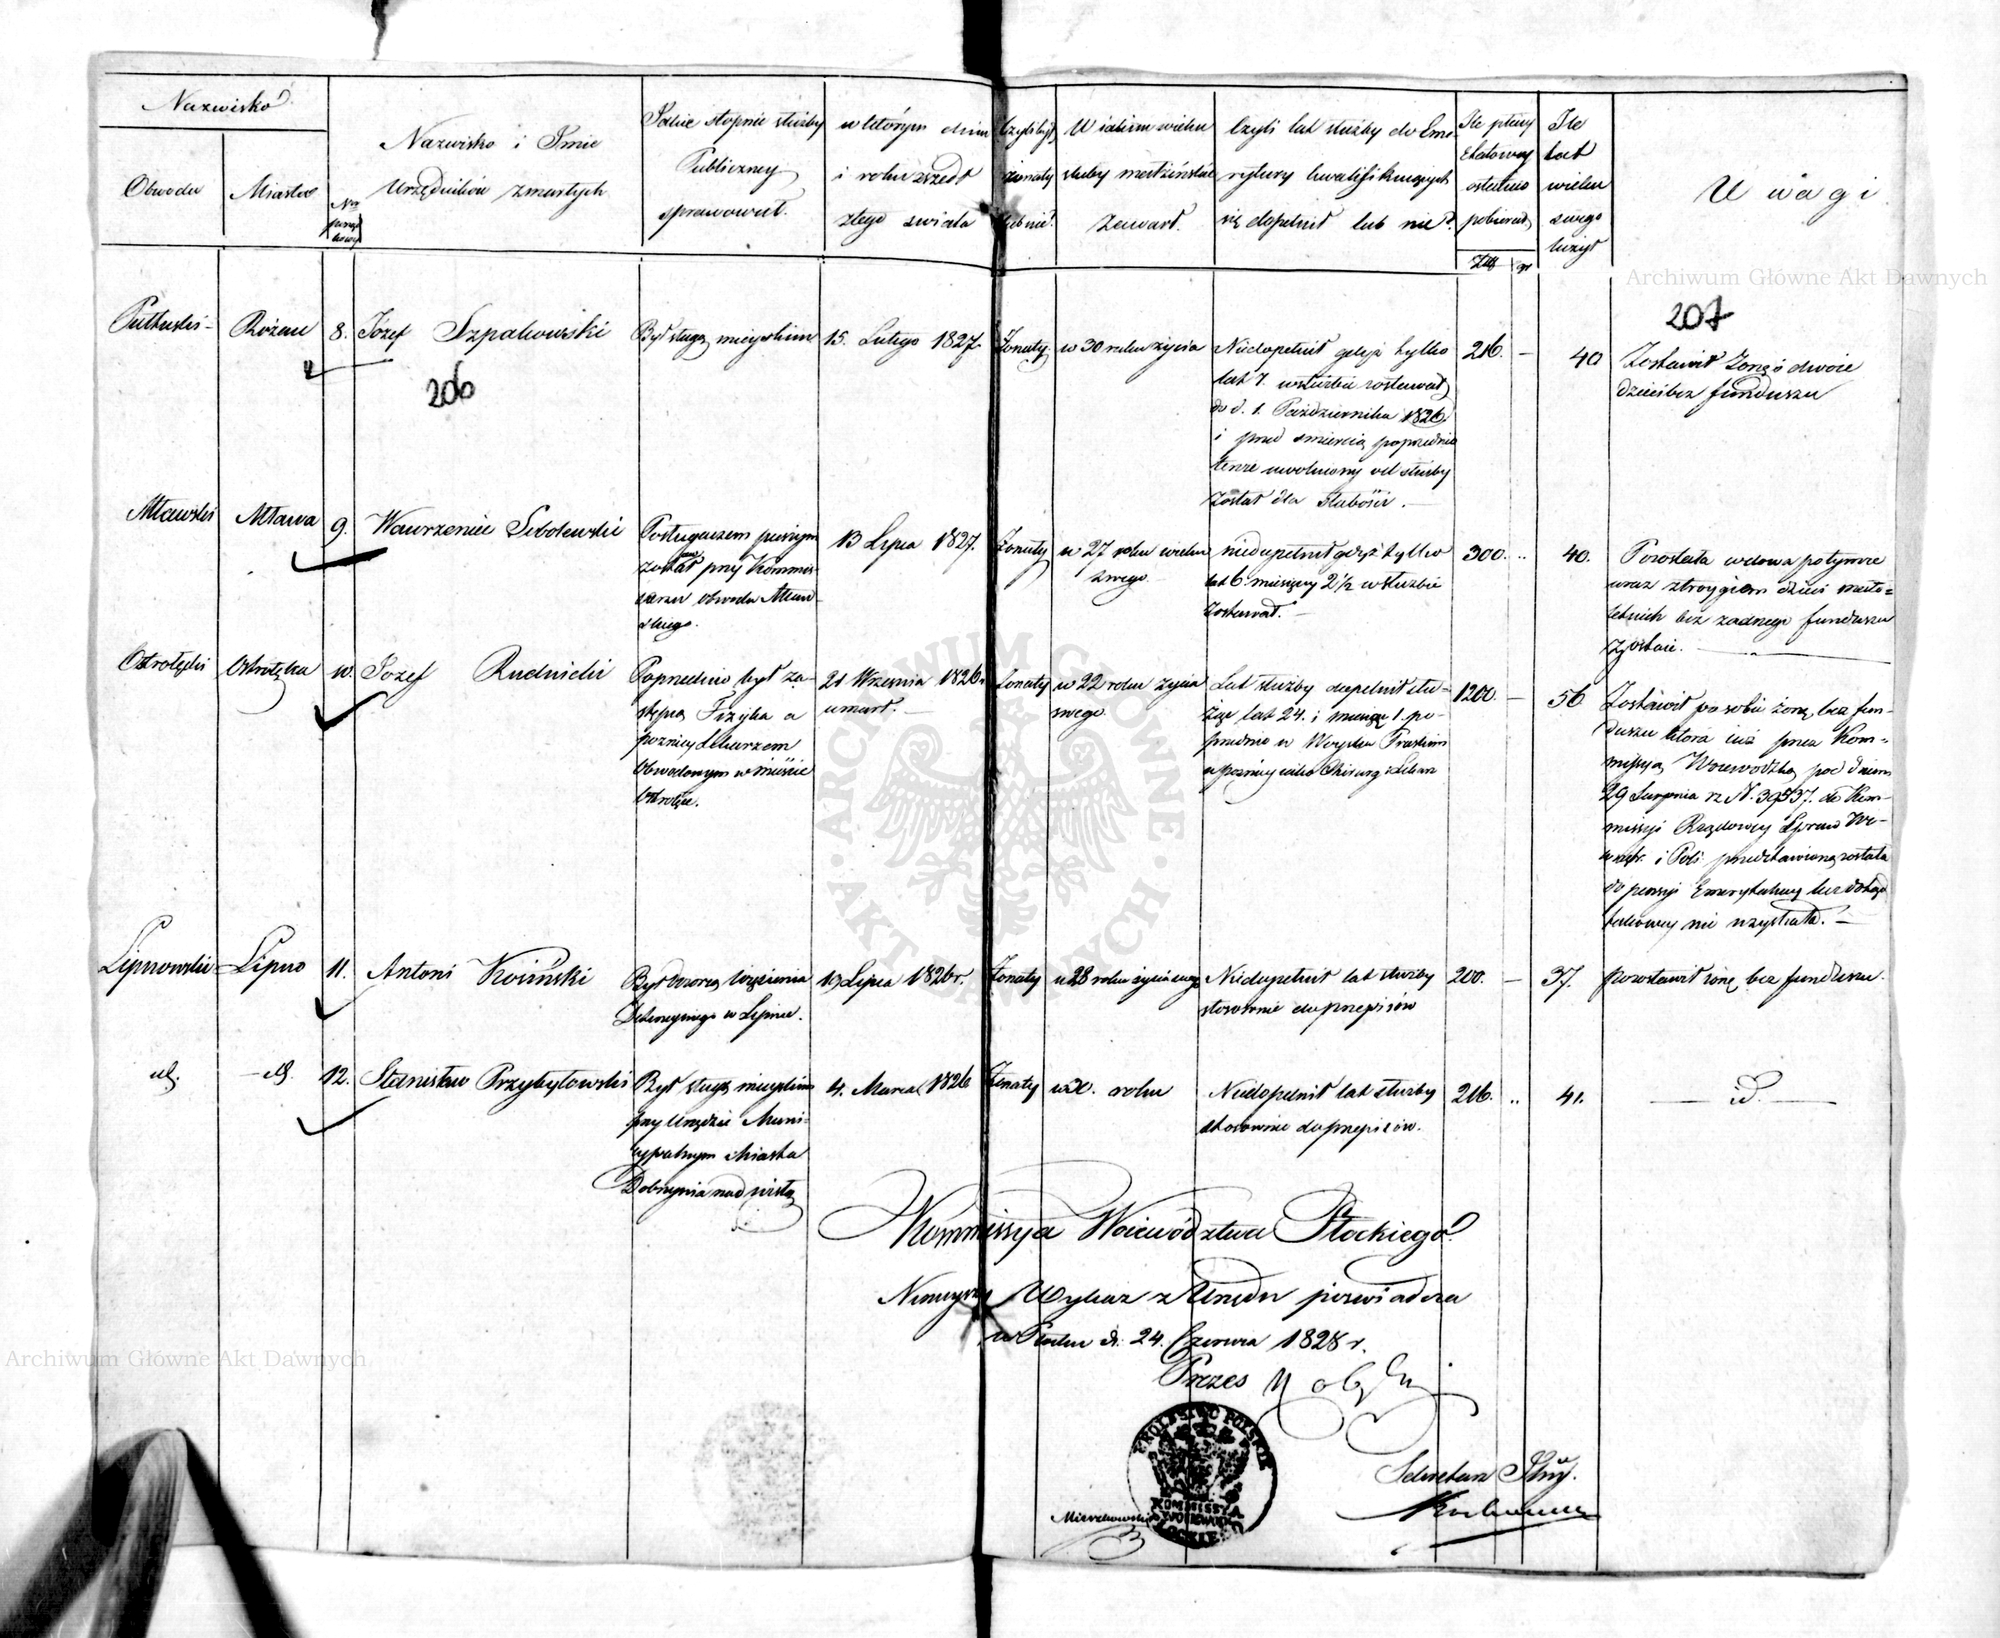 Nazwisko
Obwodu
Miasta
No porządkowy
Nazwisko i Imie
Urzędników zmarłych
Jakie stopnie służby
Publiczney
sprawował.
w którym dniu
i roku zszedł
z tego swiata
Czyli był
żonaty
lub nie?
W iakim wieku
śluby małżeńskie
zawarł.
Czyli lat służby do Eme-
rytury kwalifikujących
się dopełnił lub nie?
Ile płacy
etatowey
ostatnio
pobierał
Złp gr
Ile
lat
wieku
swego
liczył
Uwagi
Archiwum Główne Akt Dawnych
207
Pułtuski Różan 8. Józef Szpakowski
206
Był sługą mieyskim
15. Lutego 1827.
Żonaty
w 30 roku życia
Niedopełnił gdyż tylko
lat 7. w służbie zostawał
do d. 1. Października 1826
i przed smiercią poprzednio
tenże uwolniony od służby
został dla słabości. —
216. —
40
Zostawił żonę i dwoie
dzieci bez funduszu
Mławski Mława 9. Wawrzeniec Sobolewski
Posługaczem pieszym
został przy Kommis-
sarzu obwodu Mław-
skiego.
13 Lipca 1827.
Żonaty
w 27 roku wieku
swego
niedopełnił gdyż tylko
lat 6. miesięcy 2 1/2 w służbie
zostawał. —
300. ..
40.
Pozostała wdowa po tymże
wraz z troygiem dzieci mało-
letnich bez żadnego funduszu
zostaie. —
Ostrołęcki Ostrołęka 10. Józef Rudnicki
Poprzednio był za-
stępcą Fizyka a
poźniey Lekarzem
Obwodowym w mieście
Ostrołęce.
21 Wrzesnia 1826 r.
umarł. —
Żonaty
w 22 roku życia
swego
Lat służby dopełnił słu-
żąc lat 24. i miesiąc 1. po-
przednio w Woysku Pruskim
a poźniey iako Chirurg i Lekarz
1200. —
56
Zostawił po sobie żonę bez fun-
duszu która iuż przez Kom-
missyą Woiewodzką pod dniem
29 Sierpnia rz N. 39537. do Kom-
missyi Rządowey Spraw We-
wnętr. i Poli. przedstawioną została
do pensyi Emerytalney lecz dotąd
takowey nie uzyskała. —
Lipnowski Lipno 11. Antoni Koiński
Był Dozorcą Więzienia
Detencyinego w Lipnie.
13 Lipca 1826 r.
Żonaty
w 28 roku życia swego
Niedopełnił lat służby
stosownie do przepisów
200. —
37.
pozostawił żonę bez funduszu.
id. — id. 12. Stanisław Przybyłowski
Był sługą mieyskim
przy Urzędzie Muni-
cypalnym Miasta
Dobrzynia nad Wisłą
4. Marca 1826
Żonaty
w XX. roku
Niedopełnił lat służby
stosownie do przepisów.
216. ..
41.
— id. —
Kommissya Woiewództwa Płockiego
Ninieyszy Wykaz z Urzędu poświadcza
w Płocku d. 24. Czerwca 1828 r.
Archiwum Główne Akt Dawnych
Prezes
KROLESTWO POLSKIE
KOMMISSYA
WOIEWODZ
PŁOCKIE
Sekretarz
ARCHIWUM GŁÓWNE AKT DAWNYCH